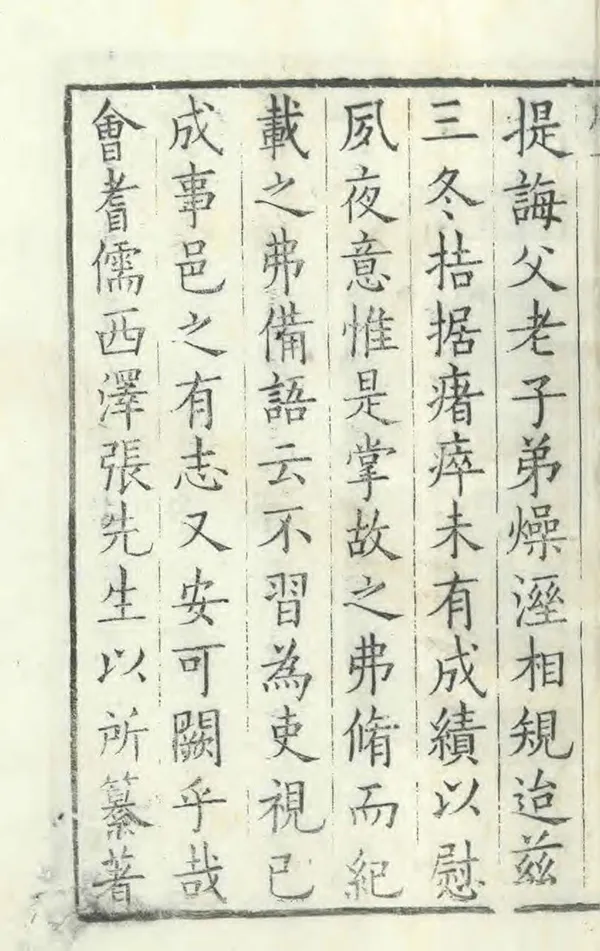 提誨父老子弟燥溼相規迨茲
三冬拮据瘏瘁未有成績以慰
夙夜意惟是掌故之弗脩而紀
載之弗備語云不習為吏視已
成事邑之有志又安可闕乎哉
會耆儒西澤張先生以所纂著